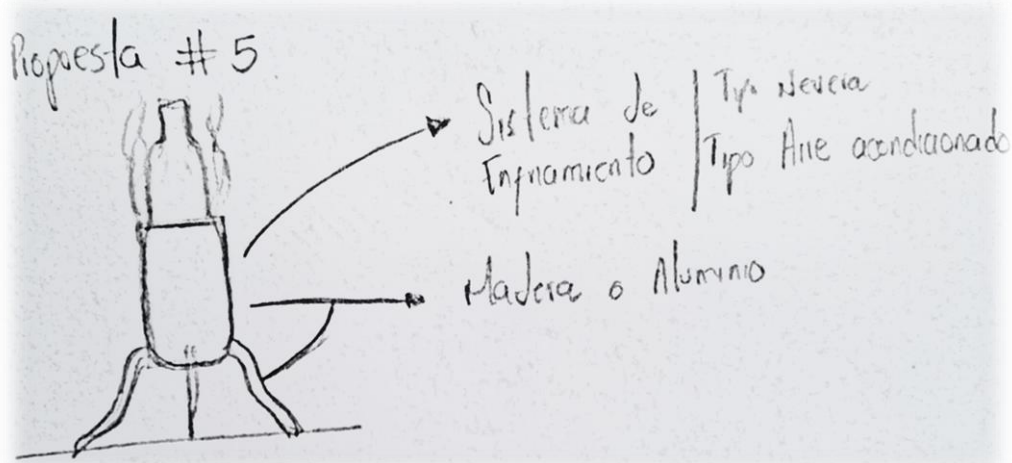 Propuesta # 5
Sistema de
Enfriamiento
Tipo Nevera
Tipo Aire acondicionado
Madera o Aluminio